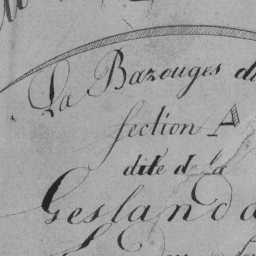 La Bazouges du
section A
dite de la
Gesland